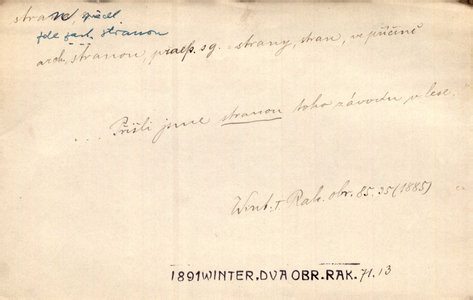 stran, předl
jde zast. stranou
arch. stranou, praep. sg. strany, stran, ve příčině
... Přišli jsme stranou toho závodu v lese.
Wint. Rak. obr. 85. 35 (1885)
1891 WINTER. DVA OBR. RAK. 71.13